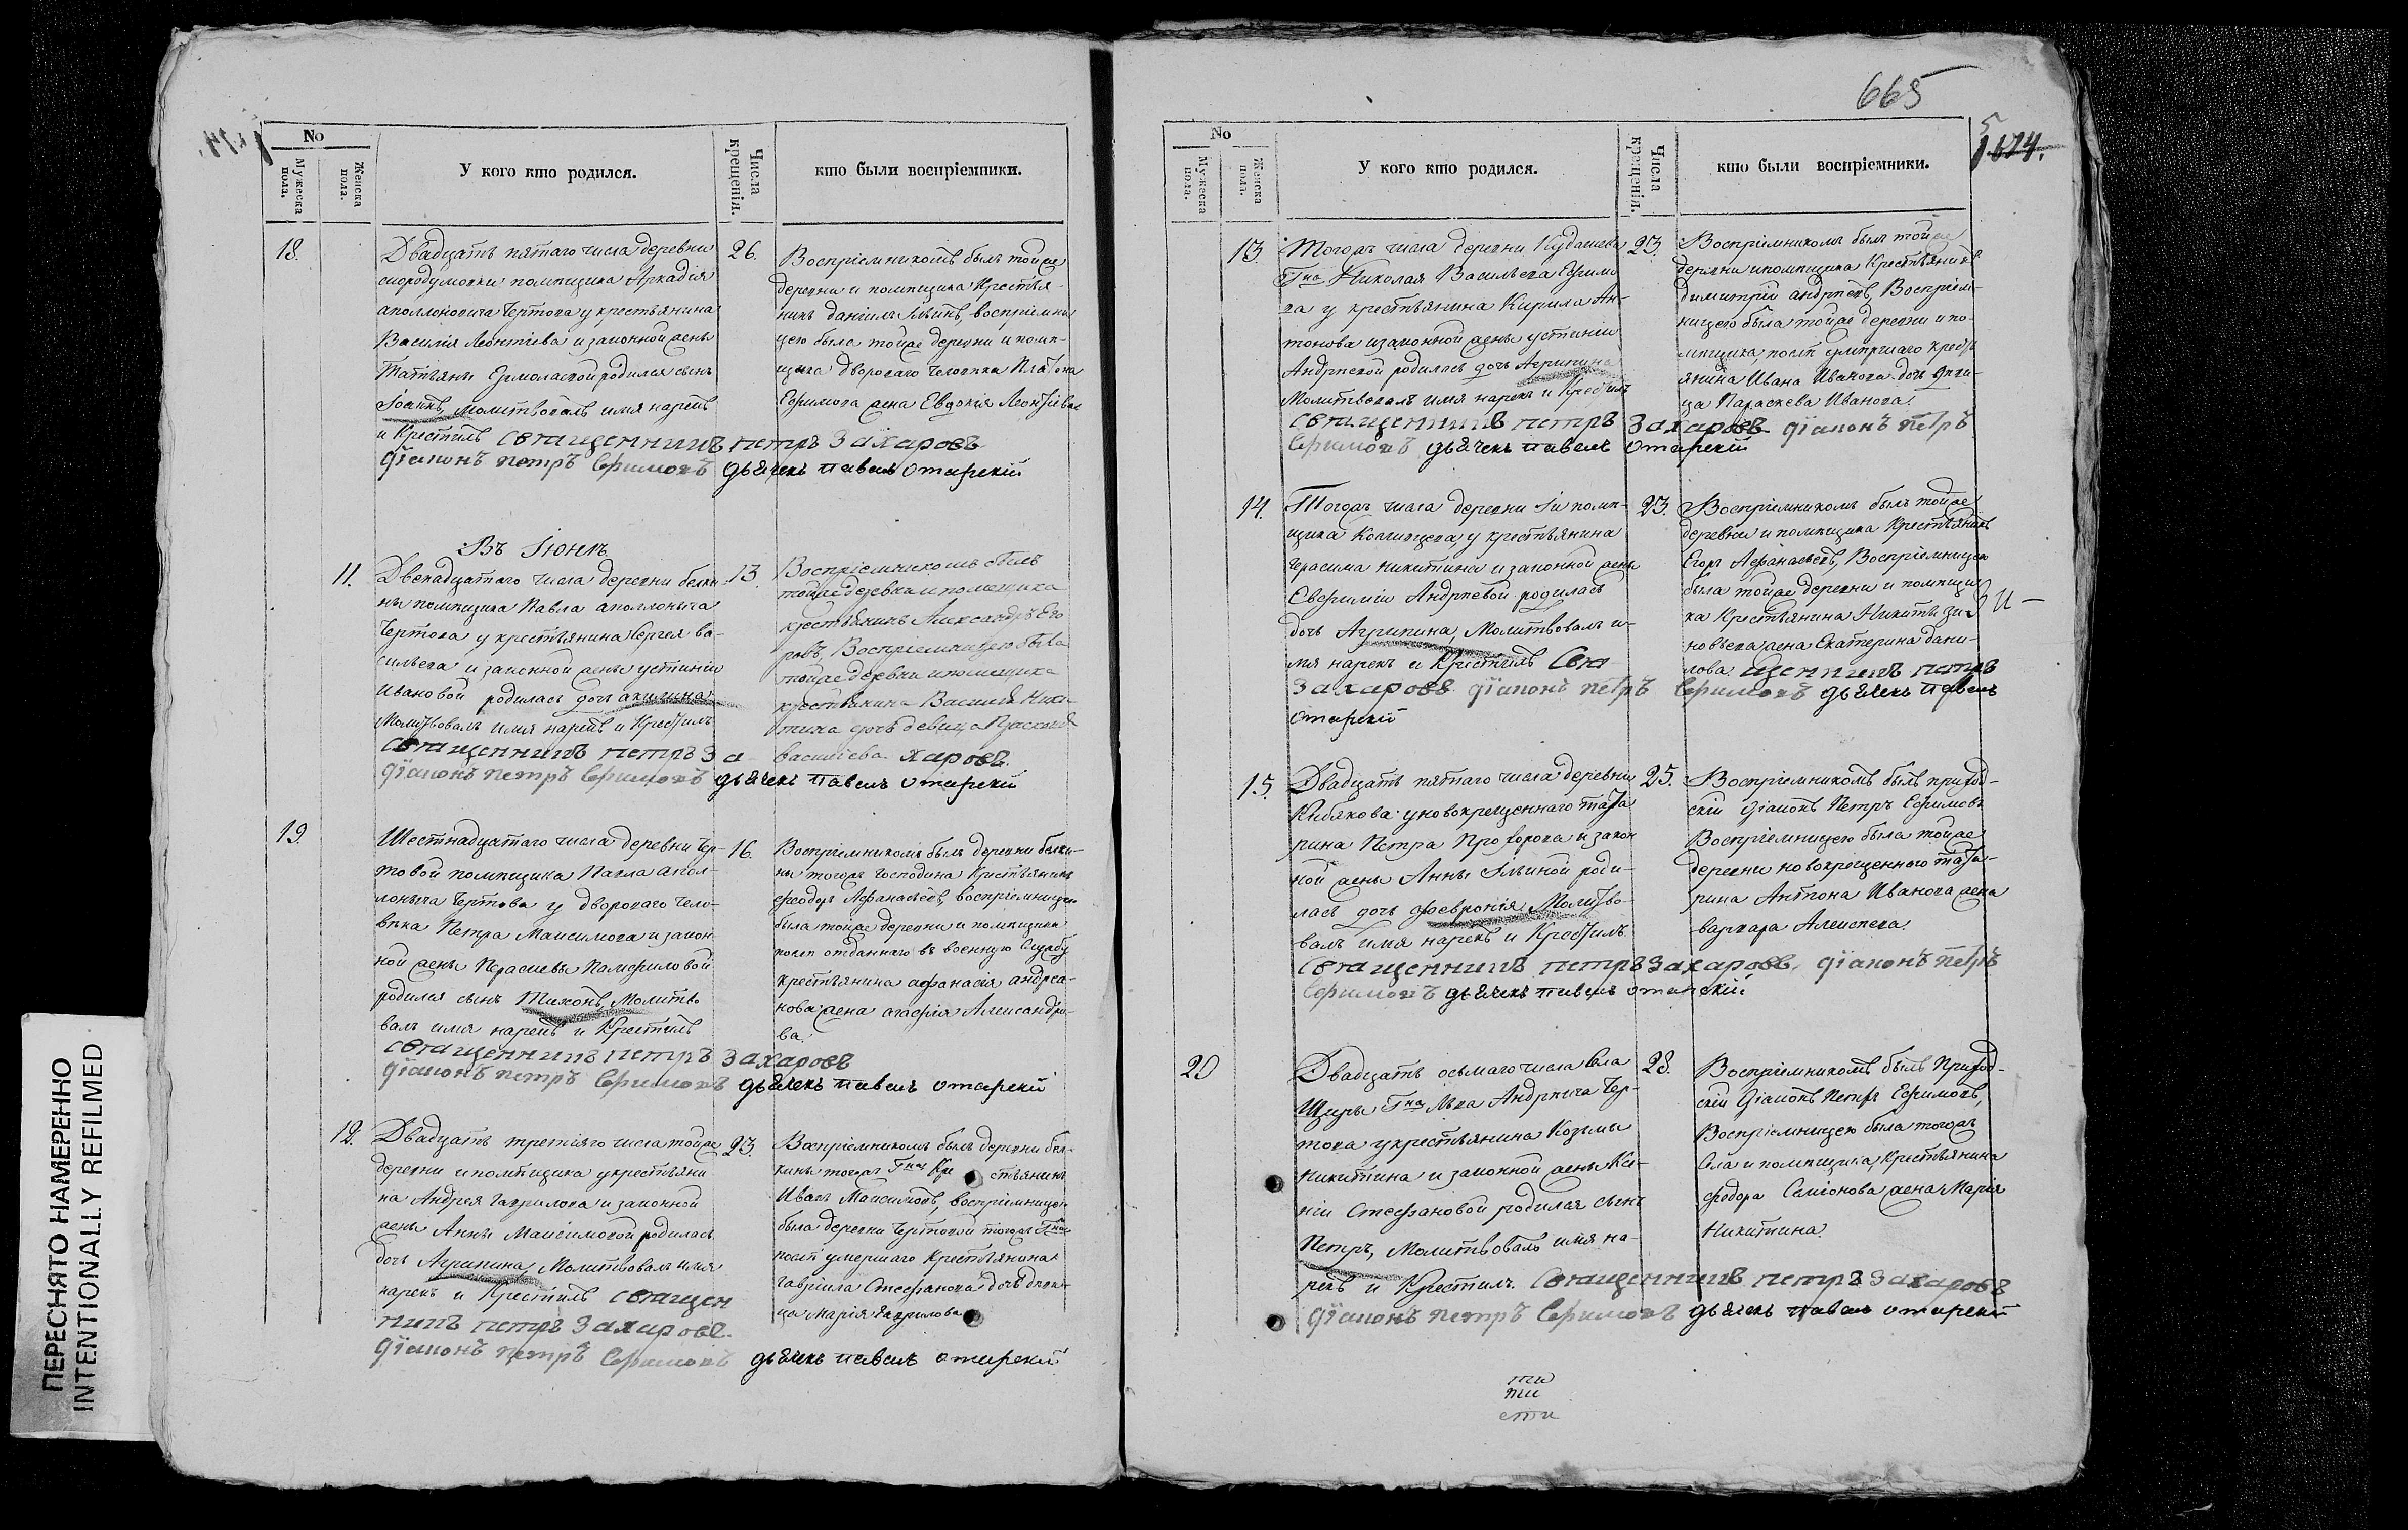 ПЕРЕСНЯТО НАМЕРЕННО
INTENTIONALLY REFILMED
No
Мужеска пола.
Женска пола.
У кого кто родился.
Числа крещенія.
кто были воспріемники.
18.
Двадцать пятаго числа деревни
скородумовки помѣщика Аркадія
аполлоновича Чертова у крестьянина
Василія Леонтіева и законной жены
Татьяны Ермолаевой родился сынъ
Іоаннъ, молитвовалъ имя нарекъ
и Крестилъ священникъ петръ Захаровъ
діаконъ петръ Ефимовъ дьячекъ павелъ отарскій
26.
Воспріемникомъ былъ тойже
деревни и помѣщика Крестья-
нинъ даніилъ Ильинъ, воспріемни
цею была тойже деревни и помѣ-
щика двороваго человѣка Платона
Ефимова жена Евдокія Леонтіева
Въ Іюнѣ
11.
Двенадцатаго числа деревни белки-
ны помѣщика Павла аполлоныча
Чертова у крестьянина Сергея ва-
сильева и законной жены устиніи
Ивановой родилась дочь акилина
Молитвовалъ имя нарекъ и Крестилъ
священникъ петръ За харовъ
діаконъ петръ Ефимовъ дьячекъ павелъ отарскій
13.
Воспріемникомъ былъ
тойже деревни и помещика
крестьянинъ Александръ Его
ровъ, Воспріемницею была
тойже деревни и помещика
крестьянина Василья Ники-
тина дочь девица
василіева
19.
Шестнадцатаго числа деревни Чер-
товой помѣщика Павла апол-
лоныча Чертова у двороваго чело-
вѣка Петра Максимова и закон
ной жены Парасиевы Памфиловой
родился сынъ Тихонъ, Молитво
валъ имя нарекъ и Крестилъ
священникъ петръ Захаровъ
діаконъ петръ Ефимовъ дьячекъ павелъ отарскій
16.
Воспріемникомъ былъ деревни белки-
ны тогожъ господина Крестьянинъ
феодоръ Афанасьевъ, воспріемницею
была тойже деревни и помѣщика
послѣ отданнаго въ военную Службу
крестьянина афанасія андреа-
нова жена агафія Александро-
ва.
12.
Двадцать третіяго числа тойже
деревни и помѣщика у крестьяни
на Андрея гаврилова и законной
жены Анны Максимовой родилась
дочь Агрипина, Молитвовалъ имя
нарекъ и Крестилъ священ
никъ петръ Захаровъ.
діаконъ петръ Ефимовъ дьячекъ павелъ отарскій
23.
Воспріемникомъ былъ деревни бел-
кины тогожъ Гна Кре стьянинъ
Иванъ Максимовъ, воспріемницею
была деревни Чертовой тогожъ Гна
послѣ умершаго Крестьянина
гавріила Стефанова дочь девк-
ца Марія гаврилова
665
5
1824.
No
Мужеска пола.
Женска пола.
У кого кто родился.
Числа крещенія.
кто были воспріемники.
13.
Тогожъ числа деревни Кудашева
Гна Николая Васильева Ефимо
ва у крестьянина Кирила Ан-
тонова и законной жены устиніи
Андрѣевой родилась дочь Агрипина
Молитвовалъ имя нарекъ и Крестилъ
священникъ петръ Захаровъ діаконъ петръ
Ефимовъ дьячекъ павелъ отарскій
23.
Воспріемникомъ былъ тойже
деревни и помѣщика Крестьянинъ
димитрій андрѣевъ, Воспріем-
ницею была тойже деревни и по-
мѣщика, послѣ умѣршаго крест
янина Ивана Иванова дочь дѣви-
ца Параскева Иванова.
14.
Тогожъ числа деревни помѣ-
щика у крестьянина
герасима никитина и законной жены
Евфиміи Андрѣевой родилась
дочь Агрипина, Молитвовалъ и-
мя нарекъ и Крестилъ Свя щенникъ петръ
Захаровъ діаконъ петръ Ефимовъ дьячекъ павелъ
отарскій
23.
Воспріемникомъ былъ тойже
деревни и помѣщика Крестьянинъ
Егоръ Афанасьевъ, Воспріемницею
была тойже деревни и помѣщи
ка Крестьянина Никиты зи-
новьева жена Екатерина дани-
лова.
15.
Двадцать пятаго числа деревни
Кибякова у новокрещеннаго тата
рина Петра Прохорова и закон
ной жены Анны Ильиной роди-
лась дочь февронія Молитво-
валъ имя нарекъ и Крестилъ
священникъ петръ Захаровъ, діаконъ петръ
Ефимовъ дьячекъ павелъ отарскій
25.
Воспріемникомъ былъ приход-
скій діаконъ Петръ Ефимовъ
Воспріемницею была тойже
деревни новокрещенного тата-
рина Антона Иванова жена
варвара Алексеева.
20
Двадцать осьмаго числа Села
Щуры Гна Льва Андрѣича Чер-
това у крестьянина Козьмы
Никитина и законной жены Ксе-
ніи Стефановой родился сынъ
Петръ, Молитвовалъ имя на-
рекъ и Крестилъ. Священникъ петръ Захаровъ
діаконъ петръ Ефимовъ дьячекъ павелъ отарскій
28.
Воспріемникомъ былъ Приход-
скій діаконъ Петръ Ефимовъ,
Воспріемницею была тогожъ
Села и помѣщика, Крестьянина
феодора Семіонова жена Марія
Никитина.